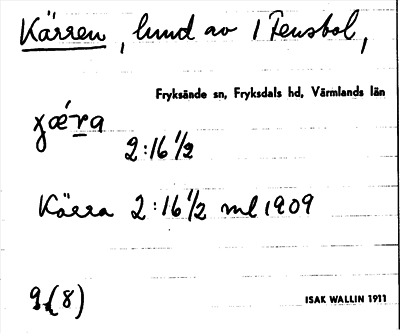 Kärren, lund av 1 Fensbol,
Fryksände sn, Fryksdals hd, Värmlands län
χǽra
2:16 1/2
Kärra 2:16 1/2 ml 1909
(8)
ISAK WALLIN 1911